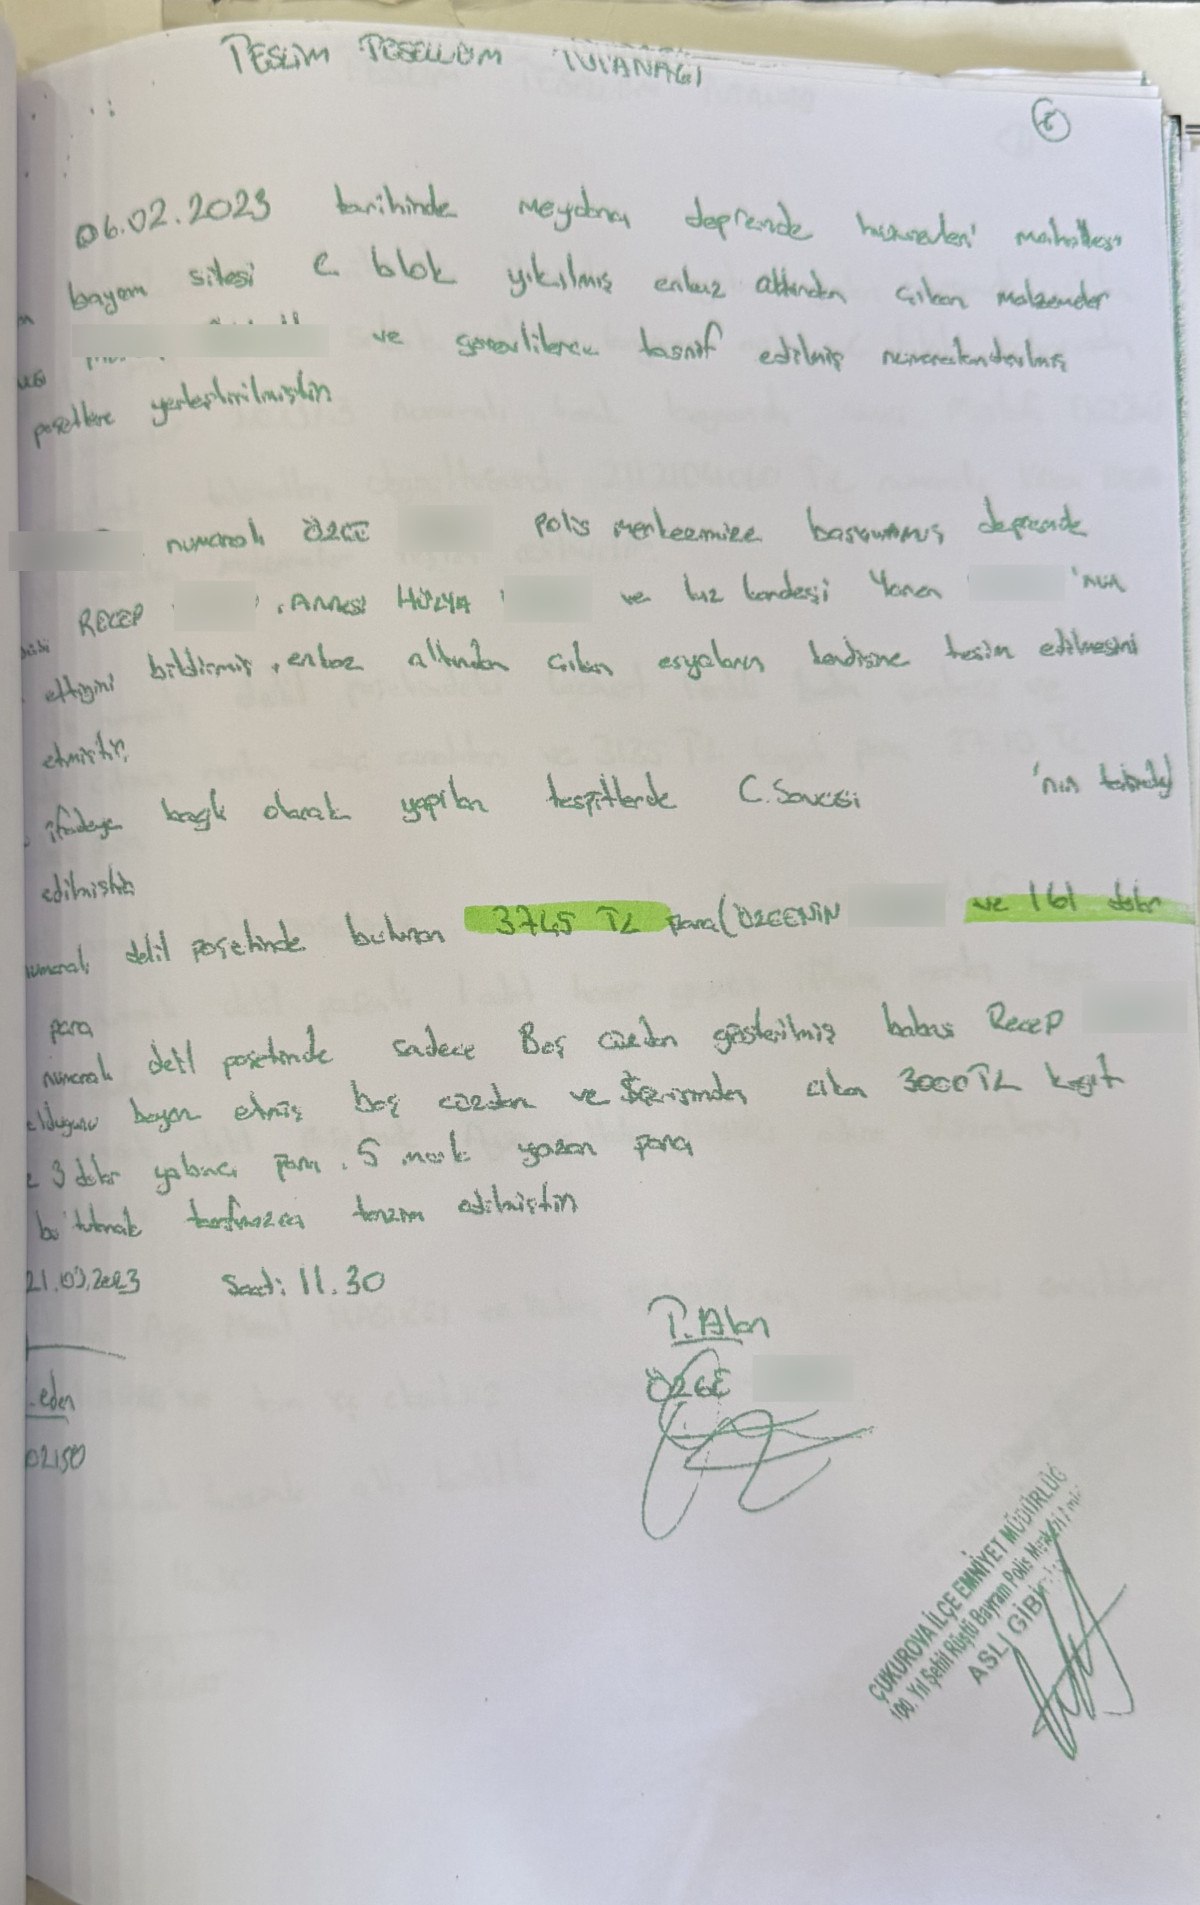 TESLİM TESELLÜM TUTANAĞI
06.02.2023 tarihinde meydana depremde huzurevleri mahallesi
bayam sitesi C blok yıkılmış enkaz altından çıkan malzemeler
ve görevlilerce tasnif edilmiş numaralandırılmış
poşetlere yerleştirilmiştir
numaralı ÖZGE polis merkezimize başvurmuş depremde
RECEP , Annesi HÜLYA ve kız kardeşi 'nın
ettiğini bildirmiş, enkaz altından çıkan esyaların kendisine teslim edilmesini
etmiştir.
ifadeye bağlı olarak yapılan tespitlerde C. Savcısı 'nın
edilmiştir
delil poşetinde bulunan 3745 TL para (ÖZGENİN ve 161 dolar
para
numaralı delil poşetinde sadece Boş cüzdan gösterilmiş babası Recep
olduğunu beyan etmiş boş cüzdan ve içerisinden çıkan 3000 TL kağıt
3 dolar yabancı para, 5 mark yazan para
bu tutanak tarafımızca tanzim edilmiştir
21.03.2023 Saat: 11.30
T. Alan
eden
ÖZGE
02150
ÇUKUROVA İLÇE EMNİYET MÜDÜRLÜĞ
100. Yıl Şehit Rüştü Bayram Polis Merkezi Amir
ASLI GİBİ